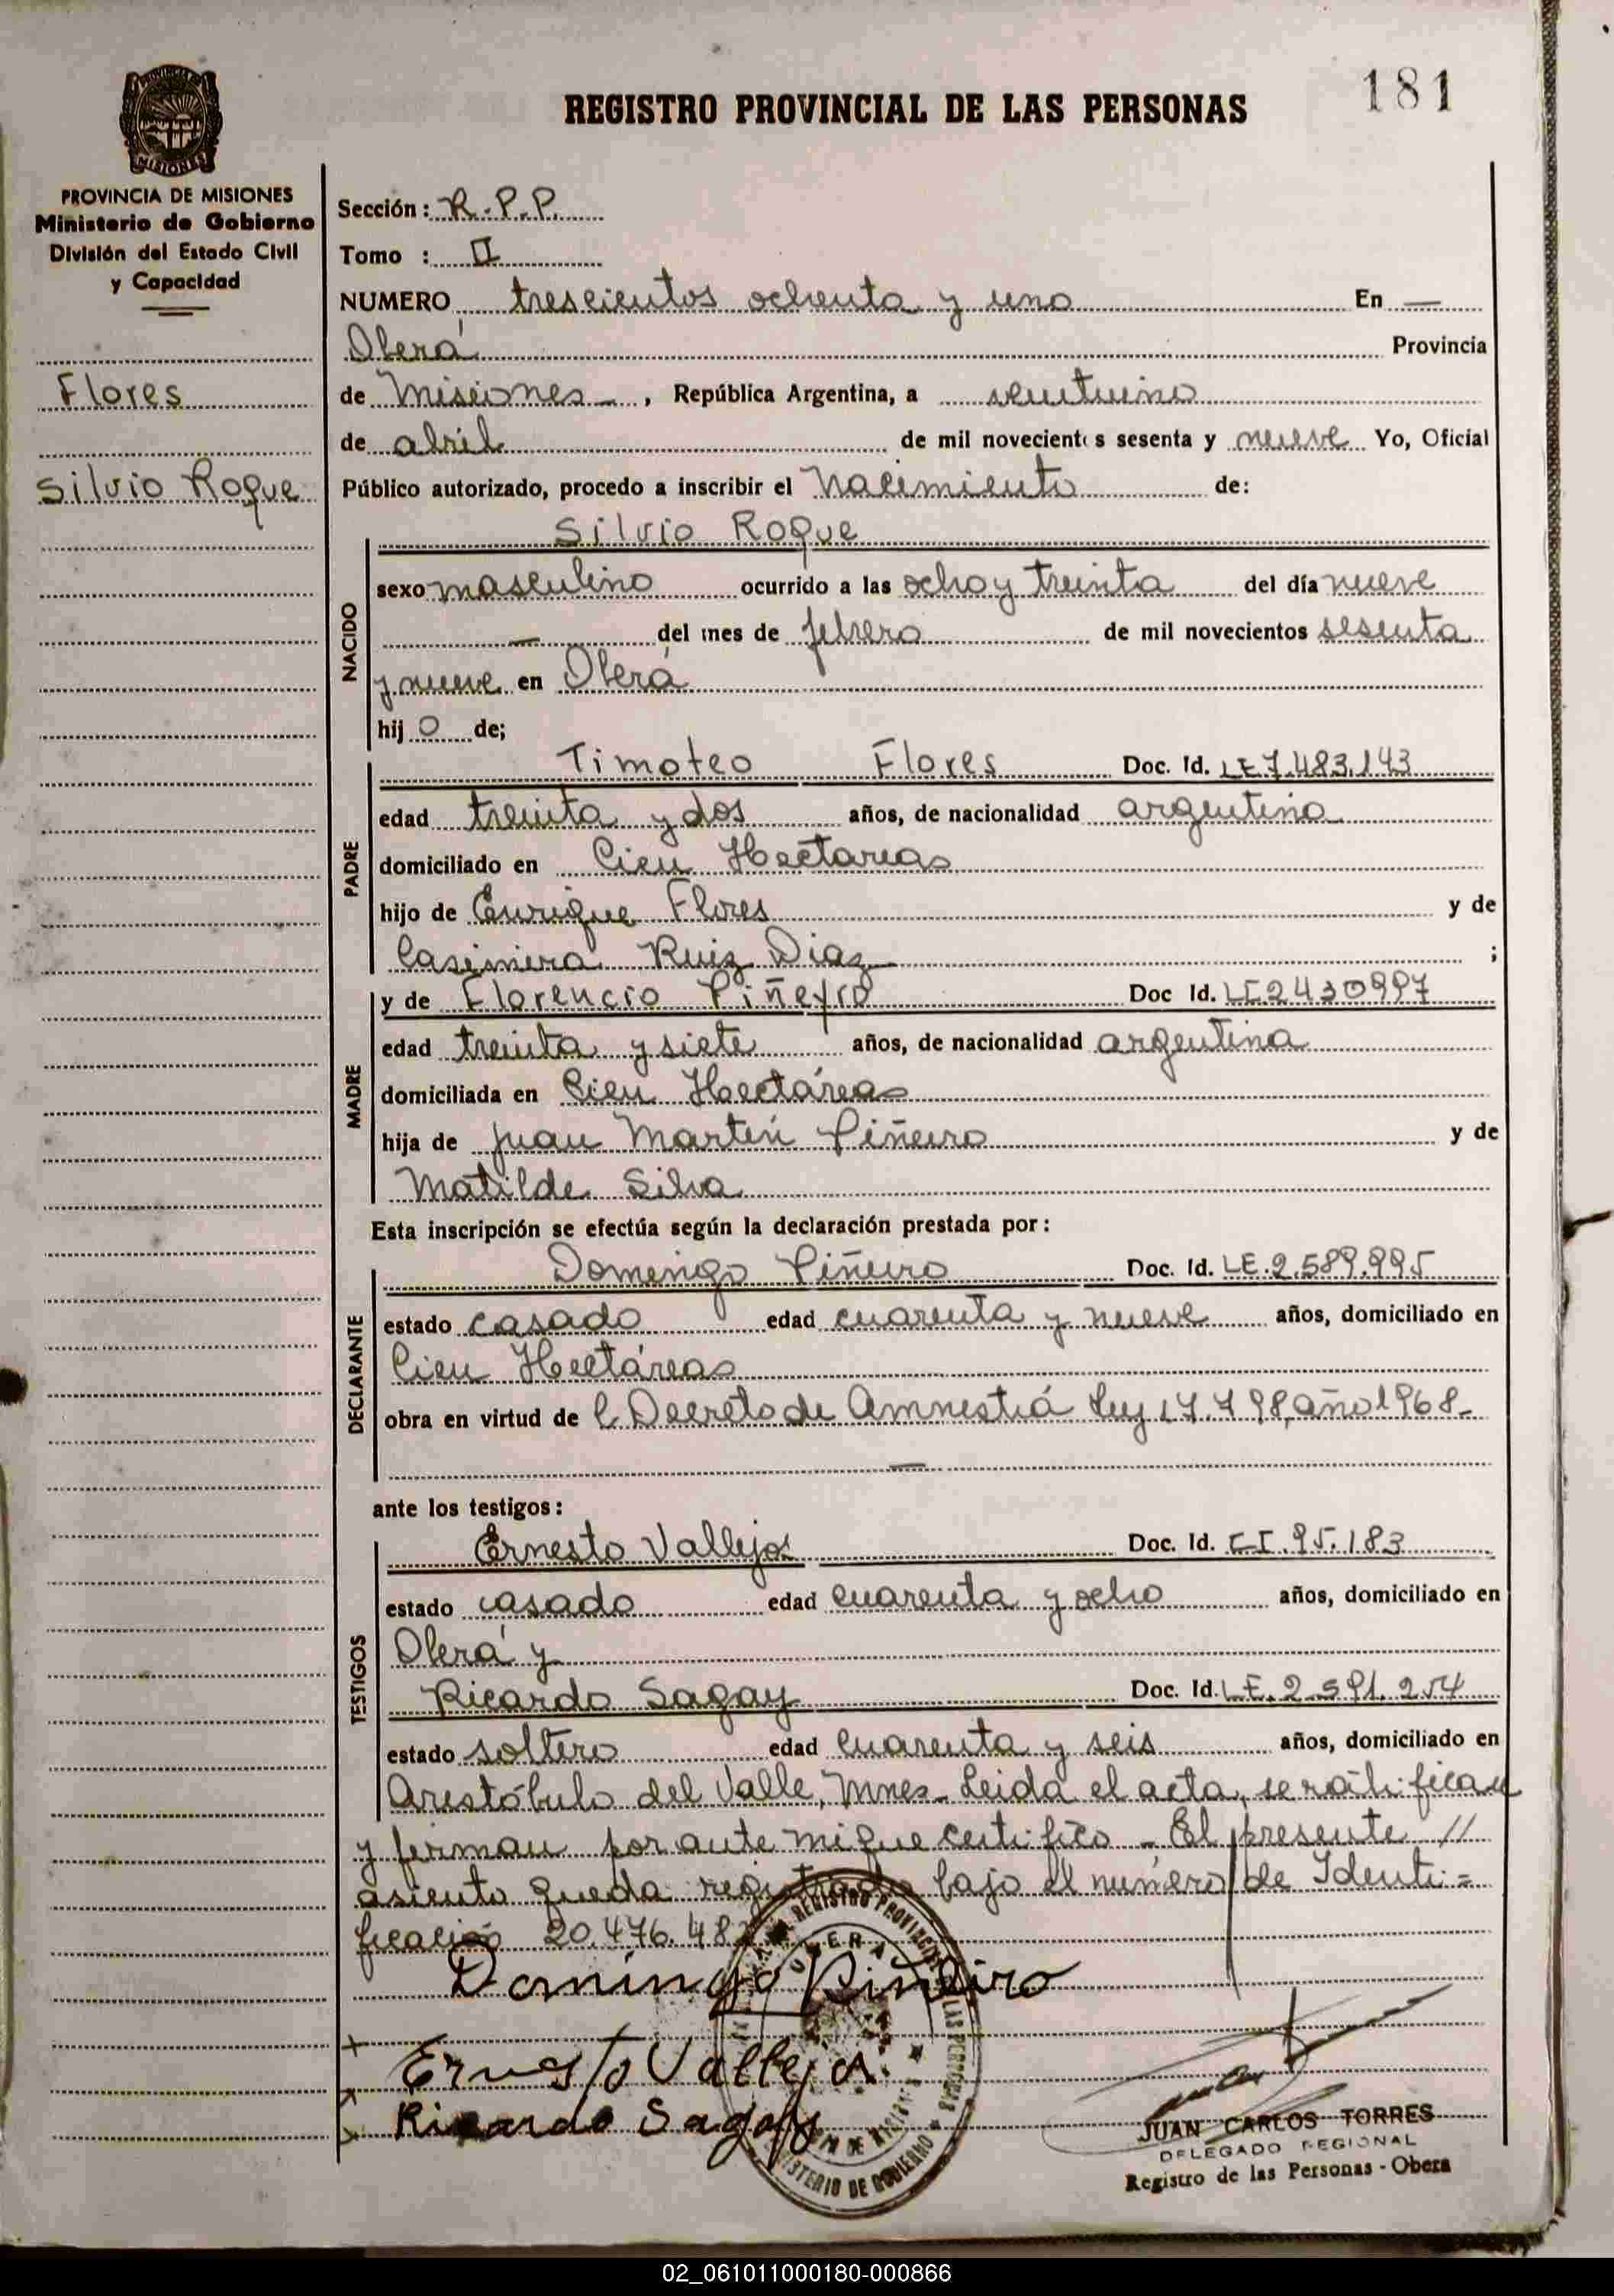 181
REGISTRO PROVINCIAL DE LAS PERSONAS
MISIONES
PROVINCIA DE MISIONES
Ministerio de Gobierno
División del Estado Civil
y Capacidad
Flores
Silvio Roque
Sección: R.P.P.
Tomo : II
NUMERO trescientos ochenta y uno En —
Oberá Provincia
de Misiones —, República Argentina, a veintiuno
de abril de mil novecientos sesenta y nueve Yo, Oficial
Público autorizado, procedo a inscribir el Nacimiento de:
NACIDO
Silvio Roque
sexo masculino ocurrido a las ocho y treinta del día nueve
— del mes de febrero de mil novecientos sesenta
y nueve en Oberá
hij o de;
PADRE
Timoteo Flores Doc. Id. LE 7.483.143
edad treinta y dos años, de nacionalidad argentina
domiciliado en Cien Hectareas
hijo de Enrique Flores y de
Casimira Ruiz Diaz ;
MADRE
y de Florencio Piñeyro Doc Id. LE 2430997
edad treinta y siete años, de nacionalidad argentina
domiciliada en Cien Hectáreas
hija de Juan Martín Piñeiro y de
Matilde Silva
Esta inscripción se efectúa según la declaración prestada por:
DECLARANTE
Domingo Piñeiro Doc. Id. LE.2.589.995
estado casado edad cuarenta y nueve años, domiciliado en
Cien Hectáreas
obra en virtud de l Decreto de Amnestiá Ley 17.798, año 1968-
—
ante los testigos:
TESTIGOS
Ernesto Vallejos Doc. Id. CI.95.183
estado casado edad cuarenta y ocho años, domiciliado en
Oberá y
Ricardo Sagay Doc. Id. LE.2.591.254
estado soltero edad cuarenta y seis años, domiciliado en
Aristóbulo del Valle, Mnes- Leida el acta, se ratifican
y firman por ante mi que certifico - El presente //
asiento queda registrado bajo el número de Identi=
ficación 20.476.48
Domingo Piñeiro
Ernesto Vallejos
Ricardo Sagay
REGISTRO PROVINCIAL DE LAS PERSONAS
OBERA
MINISTERIO DE GOBIERNO
JUAN CARLOS TORRES
DELEGADO REGIONAL
Registro de las Personas - Obera
02_061011000180-000866